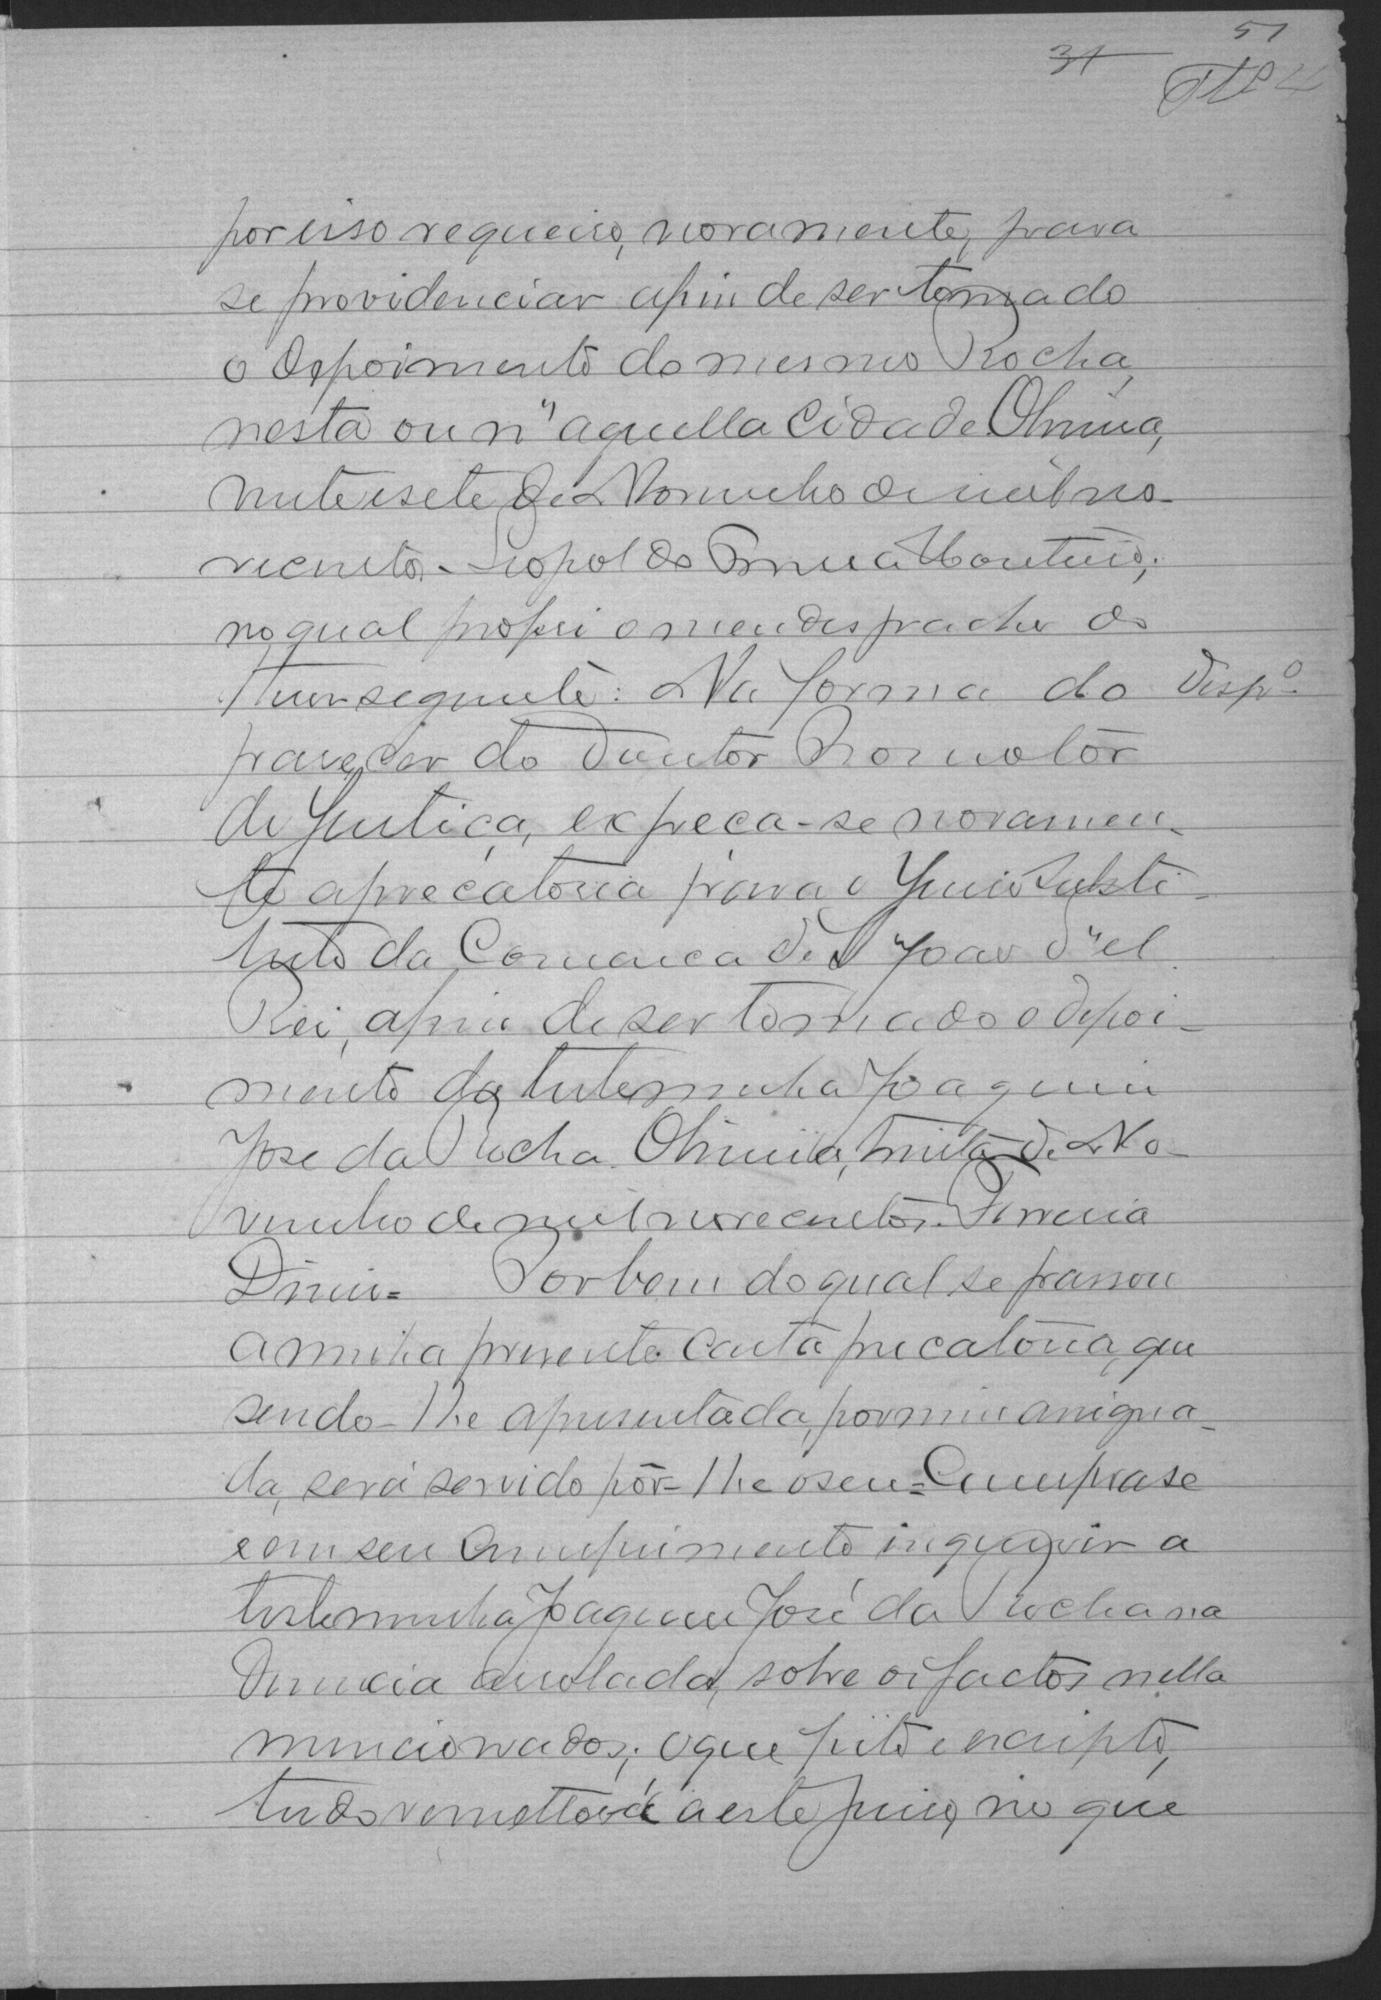 51
31
por isso requeiro, novamente, para
se providenciar afim de ser tomado
o depoimento do mesmo Rocha,
nesta ou n"aquella Cidade. Oliveira,
vinte e sete de Novembro de mil no-
vecentos. Leopoldo Ferreira Monteiro;
no qual proferi o meu despacho do
theor seguinte: Na forma do Desp.º
parecer do Doutor Promotor
de Justiça, expeça-se novamen-
te a precatoria para o Juiz Substi-
tuto da Comarca de S. João d"el
Rei, afim de ser tomado o depoi-
mento da testemunha Joaquim
José da Rocha. Oliveira, trinta de No-
vembro de mil novecentos. Ferreira
Diniz= Por bem do qual se passou
a minha presente carta precatoria, que
sendo-lhe apresentada, por mim assigna-
da, será servido pôr-lhe o seu=Cumpra se
e em seu cumprimento inquirir a
testemunha Joaquim José da Rocha na
denuncia arrolada, sobre os factos nella
mencionados; o que feito e escripto,
tudo remetterá a este juizo, no que